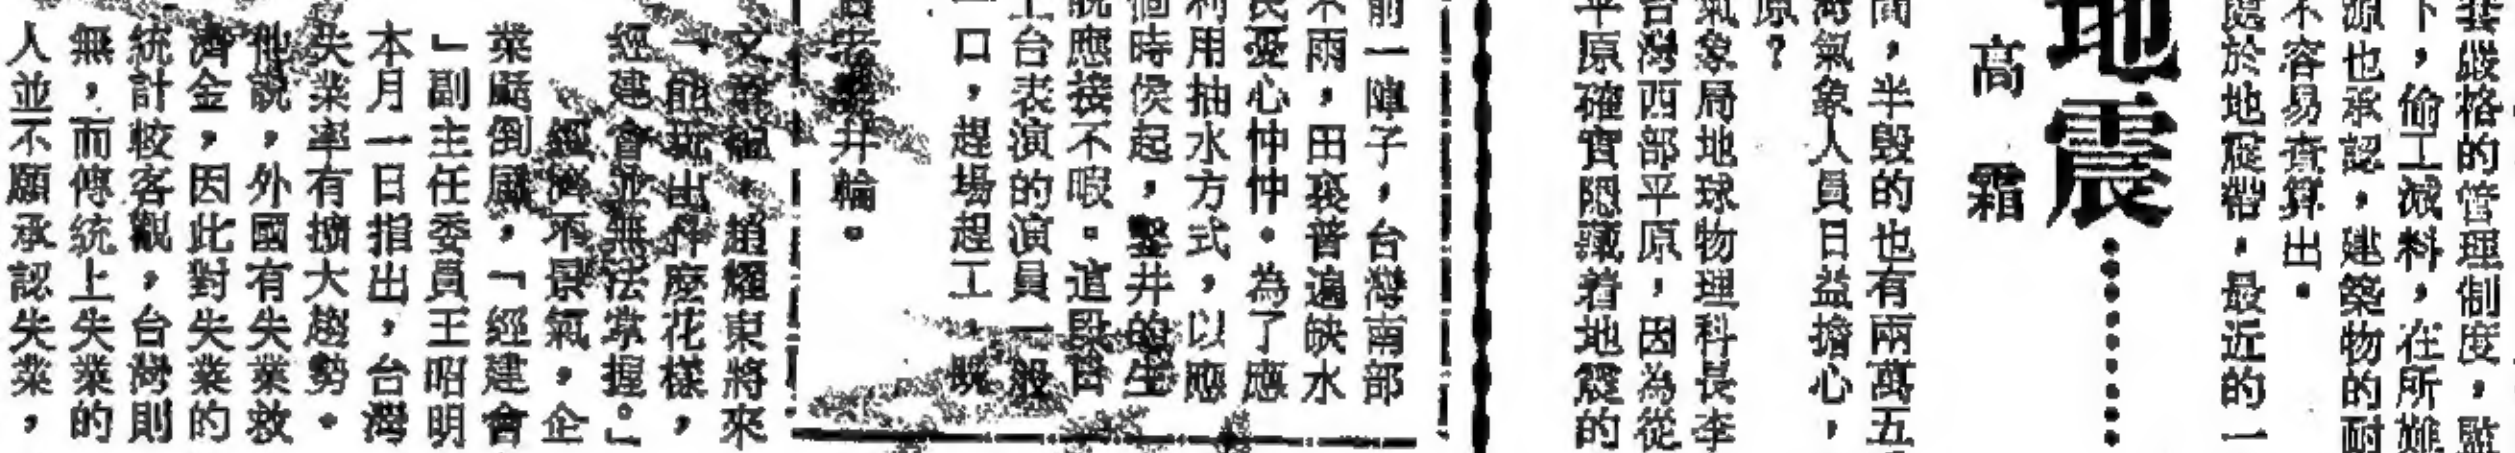 套嚴格的管理制度，監
下，偷工減料，在所難
源也承認，建築物的耐
不容易查算出。
處於地震帶，最近的一
地震⋯⋯⋯
高霜
間，半毀的也有兩萬五
灣氣象人員日益擔心，
原？
氣象局地球物理科長李
台灣西部平原，因為從
平原確實隱藏着地震的
前一陣子，台灣南部
不雨，田裏普遍缺水
民憂心忡忡。為了應
利用抽水方式，以應
個時候起，鑿井的生
說應接不暇。這段日
上台表演的演員一般
口，趕場趕工，
井輪。
趙耀東將來
「能玩出什麼花樣，
經建會並無法掌握。」
經濟不景氣，企
業颳倒風，「經建會
」副主任委員王昭明
本月一日指出，台灣
失業率有擴大趨勢。
他說，外國有失業救
濟金，因此對失業的
統計較客觀，台灣則
無，而傳統上失業的
人並不願承認失業，